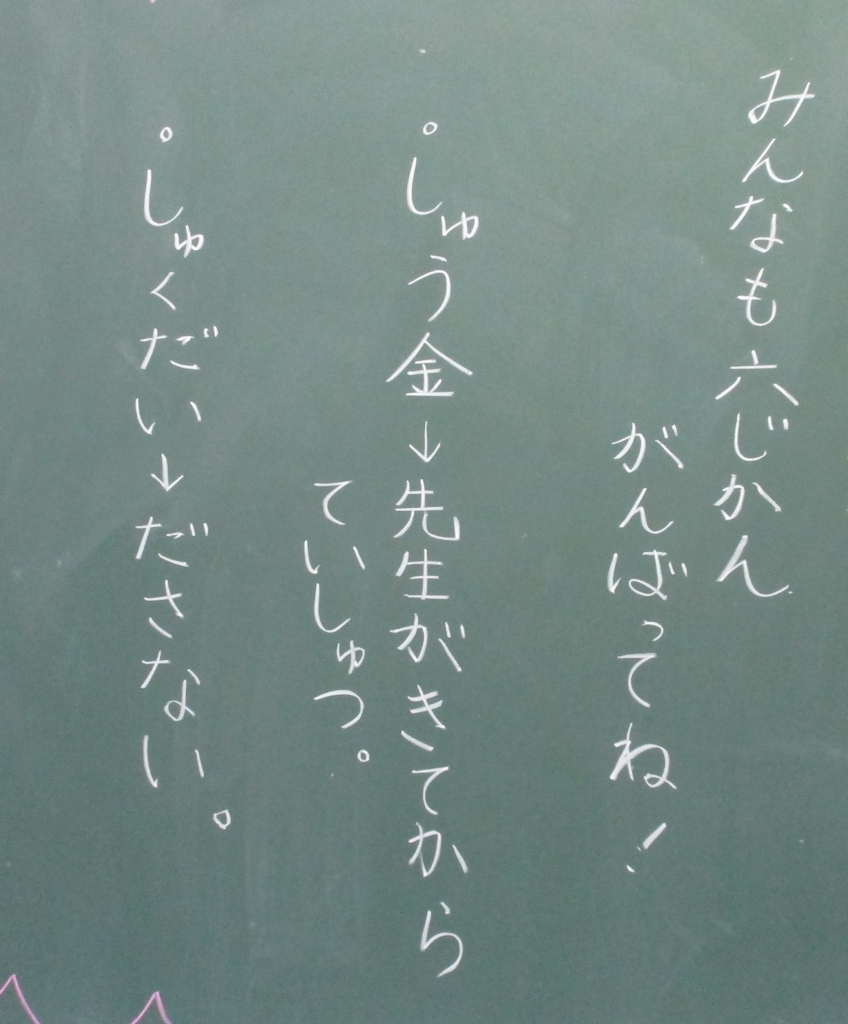 みんなも六じかん
がんばってね!
。しゅう金→先生がきてから
ていしゅつ。
。しゅくだい→ださない。